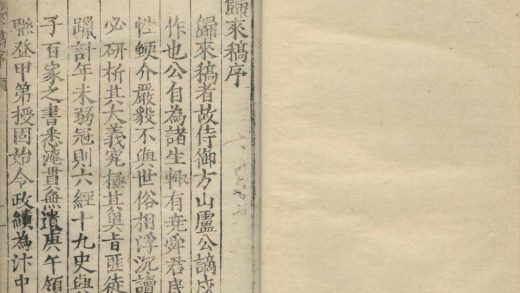 歸來稿序
歸來稿者故侍御方山盧公謫戍
作也公自為諸生輒有堯舜君民
性鯁介嚴毅不與世俗相浮沉讀
必研析其大義究極其奧旨匪徒
躐計年未弱冠則六經十九史與
子百家之書悉淹貫無遺庚午領
聯登甲第授固始令政績為汴中